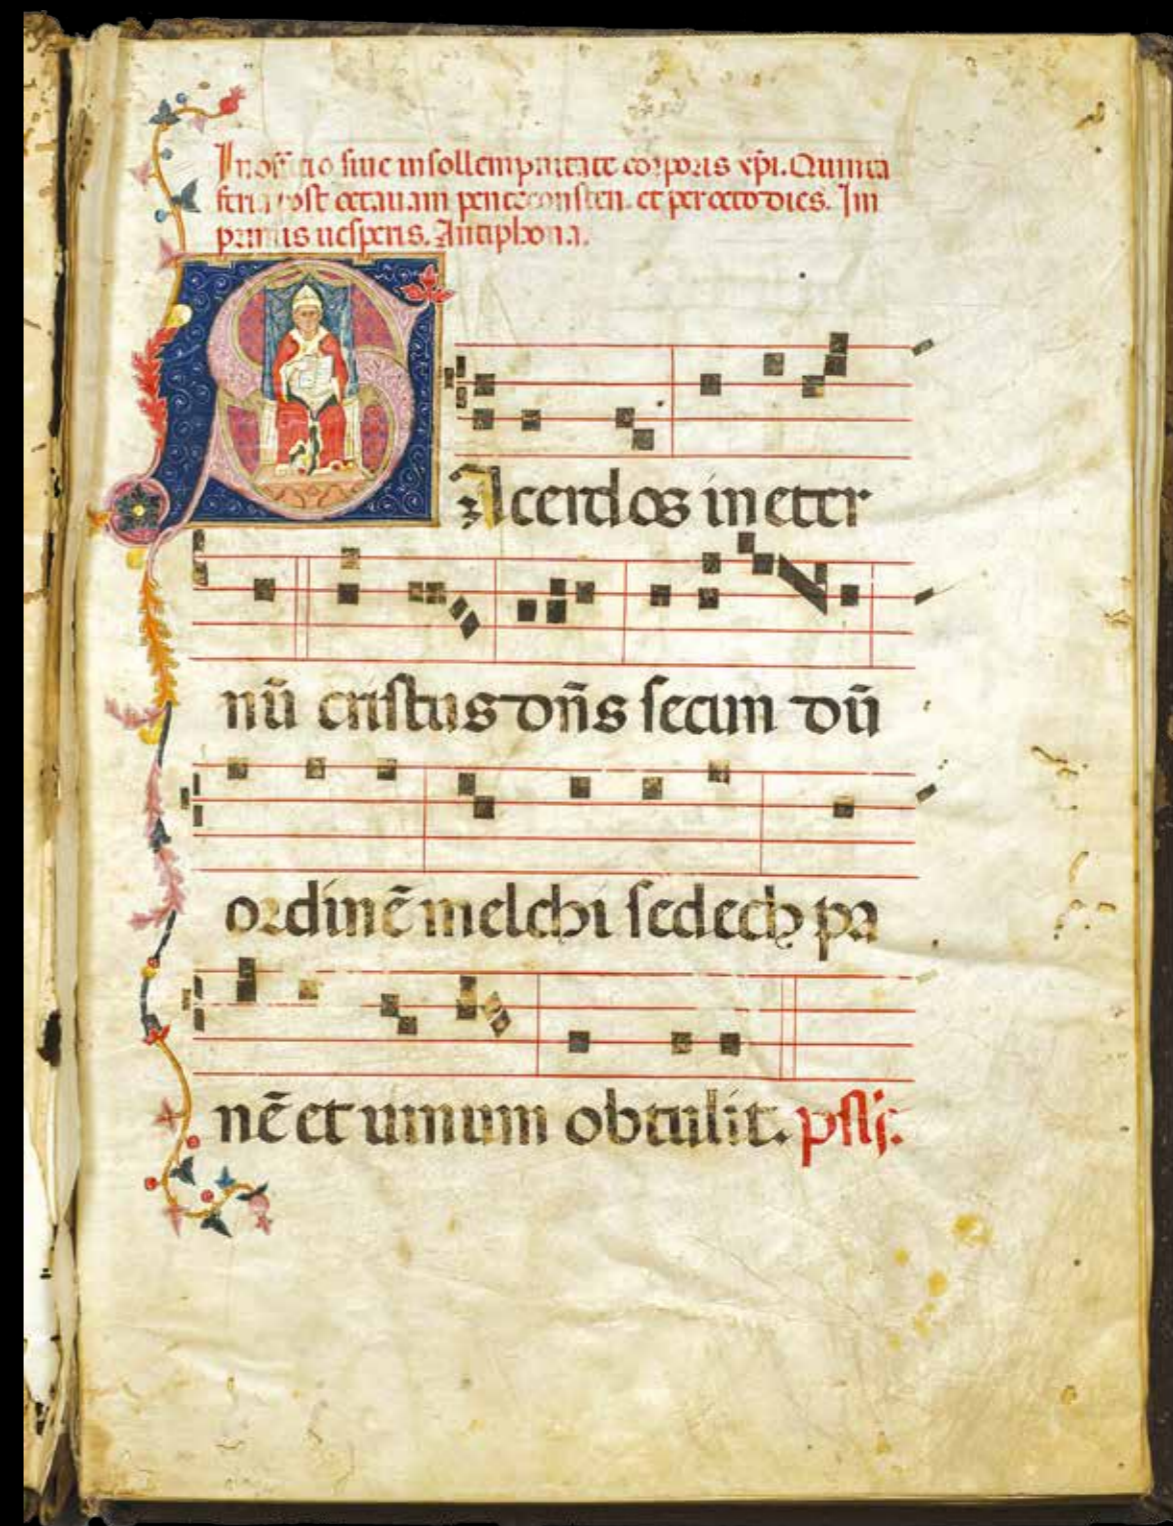 In offitio siue in sollempnitate corporis xp̄i. Quinta
feria post octauam penteconsten. et per octo dies. Im
primis uesperis. Antiphona.
SAcerdos in eter
nū cristus dn̄s secun dū
ordinē melchi sedech pa
nē et uinum obtulit. ps̄l̄s.